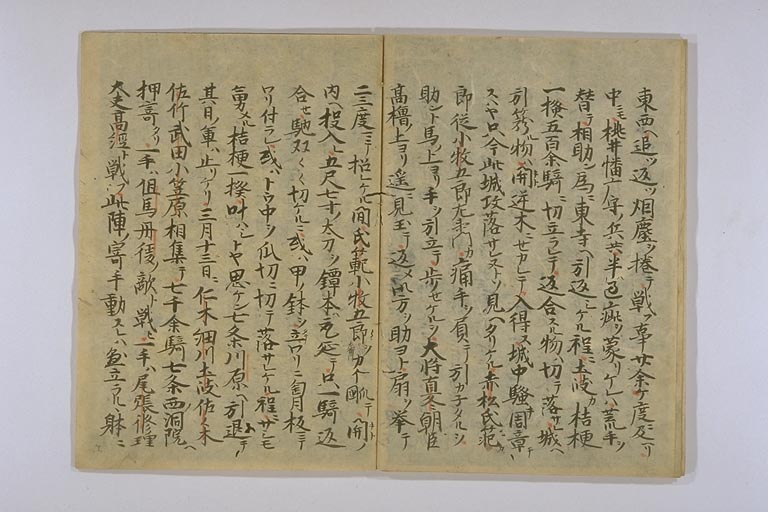 東西ヘ追ツ返ツ烟塵ヲ捲テ戦フ事廿余ケ度ニ及ヘリ
中ニモ桃井播磨守ノ兵共半ハ過疵ヲ蒙リケレハ荒手ヲ
替テ相助ン為ニ東寺ヘ引返シケル程ニ土岐カ桔梗
一揆五百余騎ニ切立ラレテ返合スル物ハ切テ落サレ城ヘ
引篭ル物ハ逆木ニセカレテ入得ス城中騒周章
スハヤ只今此城攻落サレヌトソ見ヘタリケル赤松氏範
郎従小牧五郎左衛門カ痛手ヲ負テ引カ子タルヲ
助ント馬ノ上ヨリ手ヲ引立テ歩ケルヲ大将直冬朝臣
高櫓ノ上ヨリ遥ニ見玉テ返メ御方ヲ助ヨト扇ヲ挙テ
二三度マテ招レケル間氏範小牧五郎ヲカイ掴テ
内ヘ投入五尺七寸ノ太刀ノ鐔本取延テ只一騎返
合セ馳双々々切ケルニ或ハ甲ノ鉢ヲ立ワリニ胸板マテ
ワリ付ラレ或ハトウ中ヲ瓜切ニ切テ落サレケル程ニサシモ
勇メル桔梗一揆叶ハシトヤ思ケン七条川原ヘ引退テ
其日ノ軍ハ止リケリ三月十三日ニ仁木細川土岐佐々木
佐竹武田小笠原相集テ七千余騎七条西洞院ヘ
押寄タリ一手ハ但馬丹後ノ敵ト戦ヒ一手ハ尾張修理
大夫高經ト戦フ此陣ノ寄手動スレハ懸立ラルヽ躰ニ